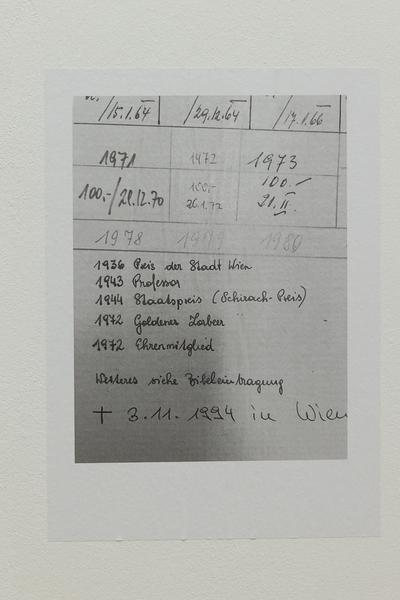 /15.1.64 /29.12.64 /17.1.66
1971 1972 1973
100,-/21.12.70 100,- 26.1.72 100.- 21.II.
1978 1979 1980
1936 Preis der Stadt Wien
1943 Professor
1944 Staatspreis (Schirach-Preis)
1972 Goldener Lorbeer
1972 Ehrenmitglied
Weiteres siehe Bibeleintragung
† 3.11.1994 in Wien